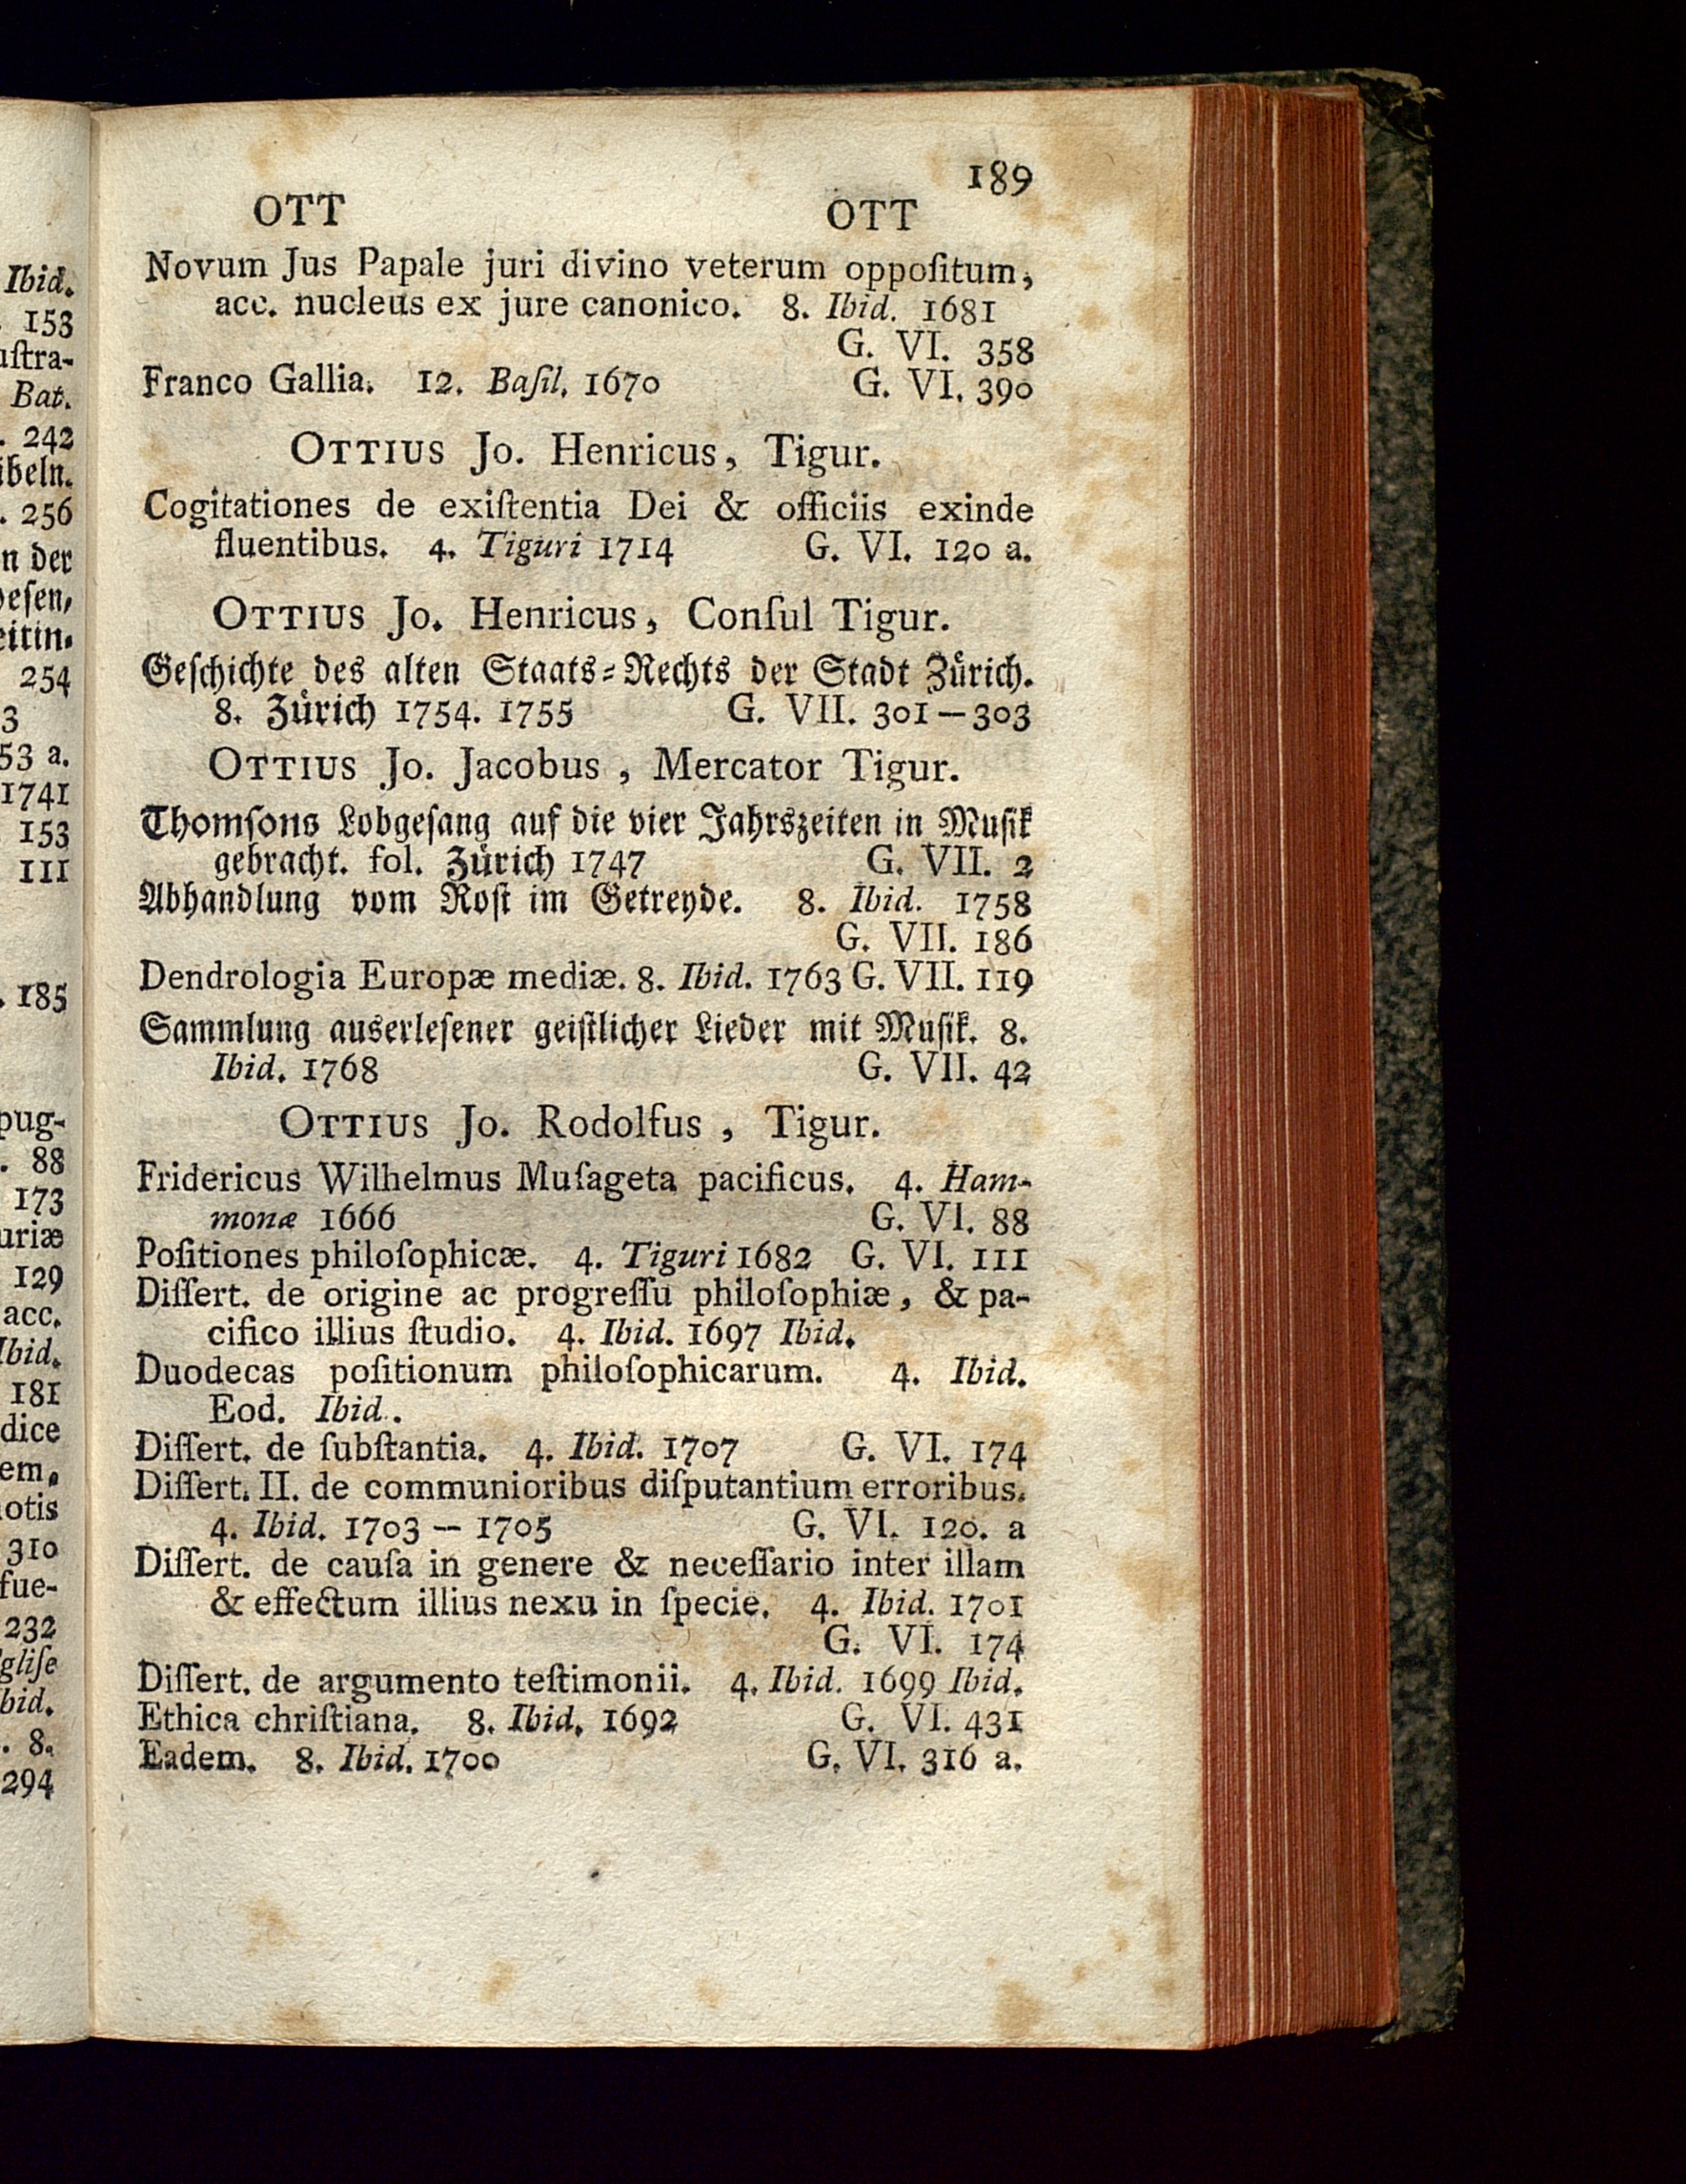 Ibid.
153
uſtra-
Bat.
. 242
ibeln.
. 256
n der
eſen,
eitin.
254
3
53 a.
1741
153
111
. 185
pug-
. 88
173
uriæ
129
acc.
Ibid.
181
dice
em.
notis
310
fue-
232
gliſe
bid.
. 8.
294
189
OTT OTT
Novum Jus Papale juri divino veterum oppoſitum,
acc. nucleus ex jure canonico. 8. Ibid. 1681
G. VI. 358
Franco Gallia. 12. Baſil. 1670 G. VI. 390
OTTIUS Jo. Henricus, Tigur.
Cogitationes de exiſtentia Dei & officiis exinde
fluentibus. 4. Tiguri 1714 G. VI. 120 a.
OTTIUS Jo. Henricus, Conſul Tigur.
Geſchichte des alten Staats-Rechts der Stadt Zürich.
8. Zürich 1754. 1755 G. VII. 301 — 303
OTTIUS Jo. Jacobus, Mercator Tigur.
Thomſons Lobgeſang auf die vier Jahrszeiten in Muſik
gebracht. fol. Zürich 1747 G. VII. 2
Abhandlung vom Roſt im Getreyde. 8. Ibid. 1758
G. VII. 186
Dendrologia Europæ mediæ. 8. Ibid. 1763 G. VII. 119
Sammlung auserleſener geiſtlicher Lieder mit Muſik. 8.
Ibid. 1768 G. VII. 42
OTTIUS Jo. Rodolfus, Tigur.
Fridericus Wilhelmus Muſageta pacificus. 4. Ham-
monæ 1666 G. VI. 88
Poſitiones philoſophicæ. 4. Tiguri 1682 G. VI. 111
Diſſert. de origine ac progreſſu philoſophiæ, & pa-
cifico illius ſtudio. 4. Ibid. 1697 Ibid.
Duodecas poſitionum philoſophicarum. 4. Ibid.
Eod. Ibid.
Diſſert. de ſubſtantia. 4. Ibid. 1707 G. VI. 174
Diſſert. II. de communioribus diſputantium erroribus.
4. Ibid. 1703 — 1705 G. VI. 120. a
Diſſert. de cauſa in genere & neceſſario inter illam
& effectum illius nexu in ſpecie. 4. Ibid. 1701
G. VI. 174
Diſſert. de argumento teſtimonii. 4. Ibid. 1699 Ibid.
Ethica chriſtiana. 8. Ibid. 1692 G. VI. 431
Eadem. 8. Ibid. 1700 G. VI. 316 a.